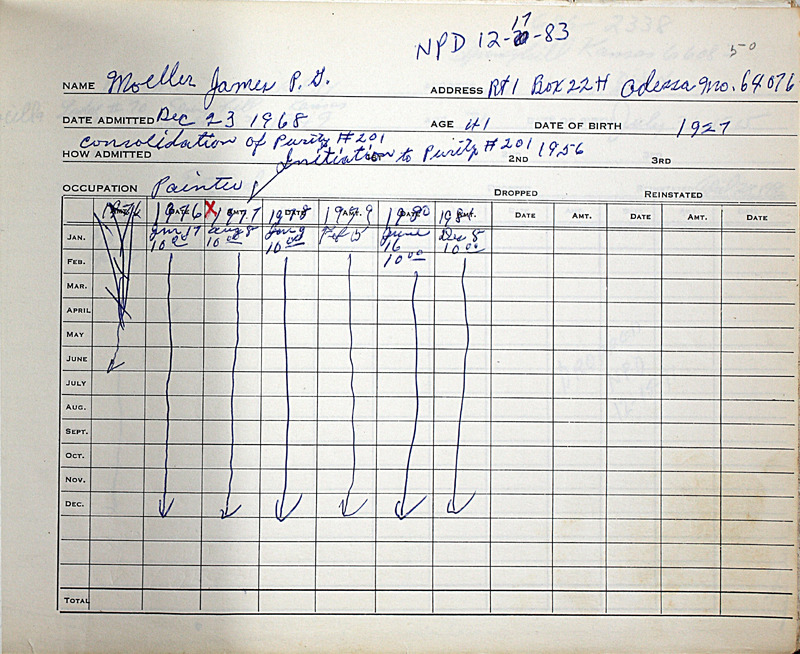 NPD 12-17-83
50
NAME Moeller James P. G. ADDRESS Rt 1 Box 22H Odessa Mo. 64076
DATE ADMITTED Dec 23 1968 AGE 41 DATE OF BIRTH 1927
Consolidation of Purity #201
HOW ADMITTED Initiation to Purity #201 1956 2ND 3RD
OCCUPATION Painter DROPPED REINSTATED
1976 X 1977 1978 1979 1980 1981 DATE AMT. DATE AMT. DATE
JAN. Jan 17 Aug 8 Jan 9 Feb 15 June Dec 5
10 00 10 00 10 00 16 10 00
FEB. 10 00
MAR.
APRIL
MAY
JUNE
JULY
AUG.
SEPT.
OCT.
NOV.
DEC.
TOTAL